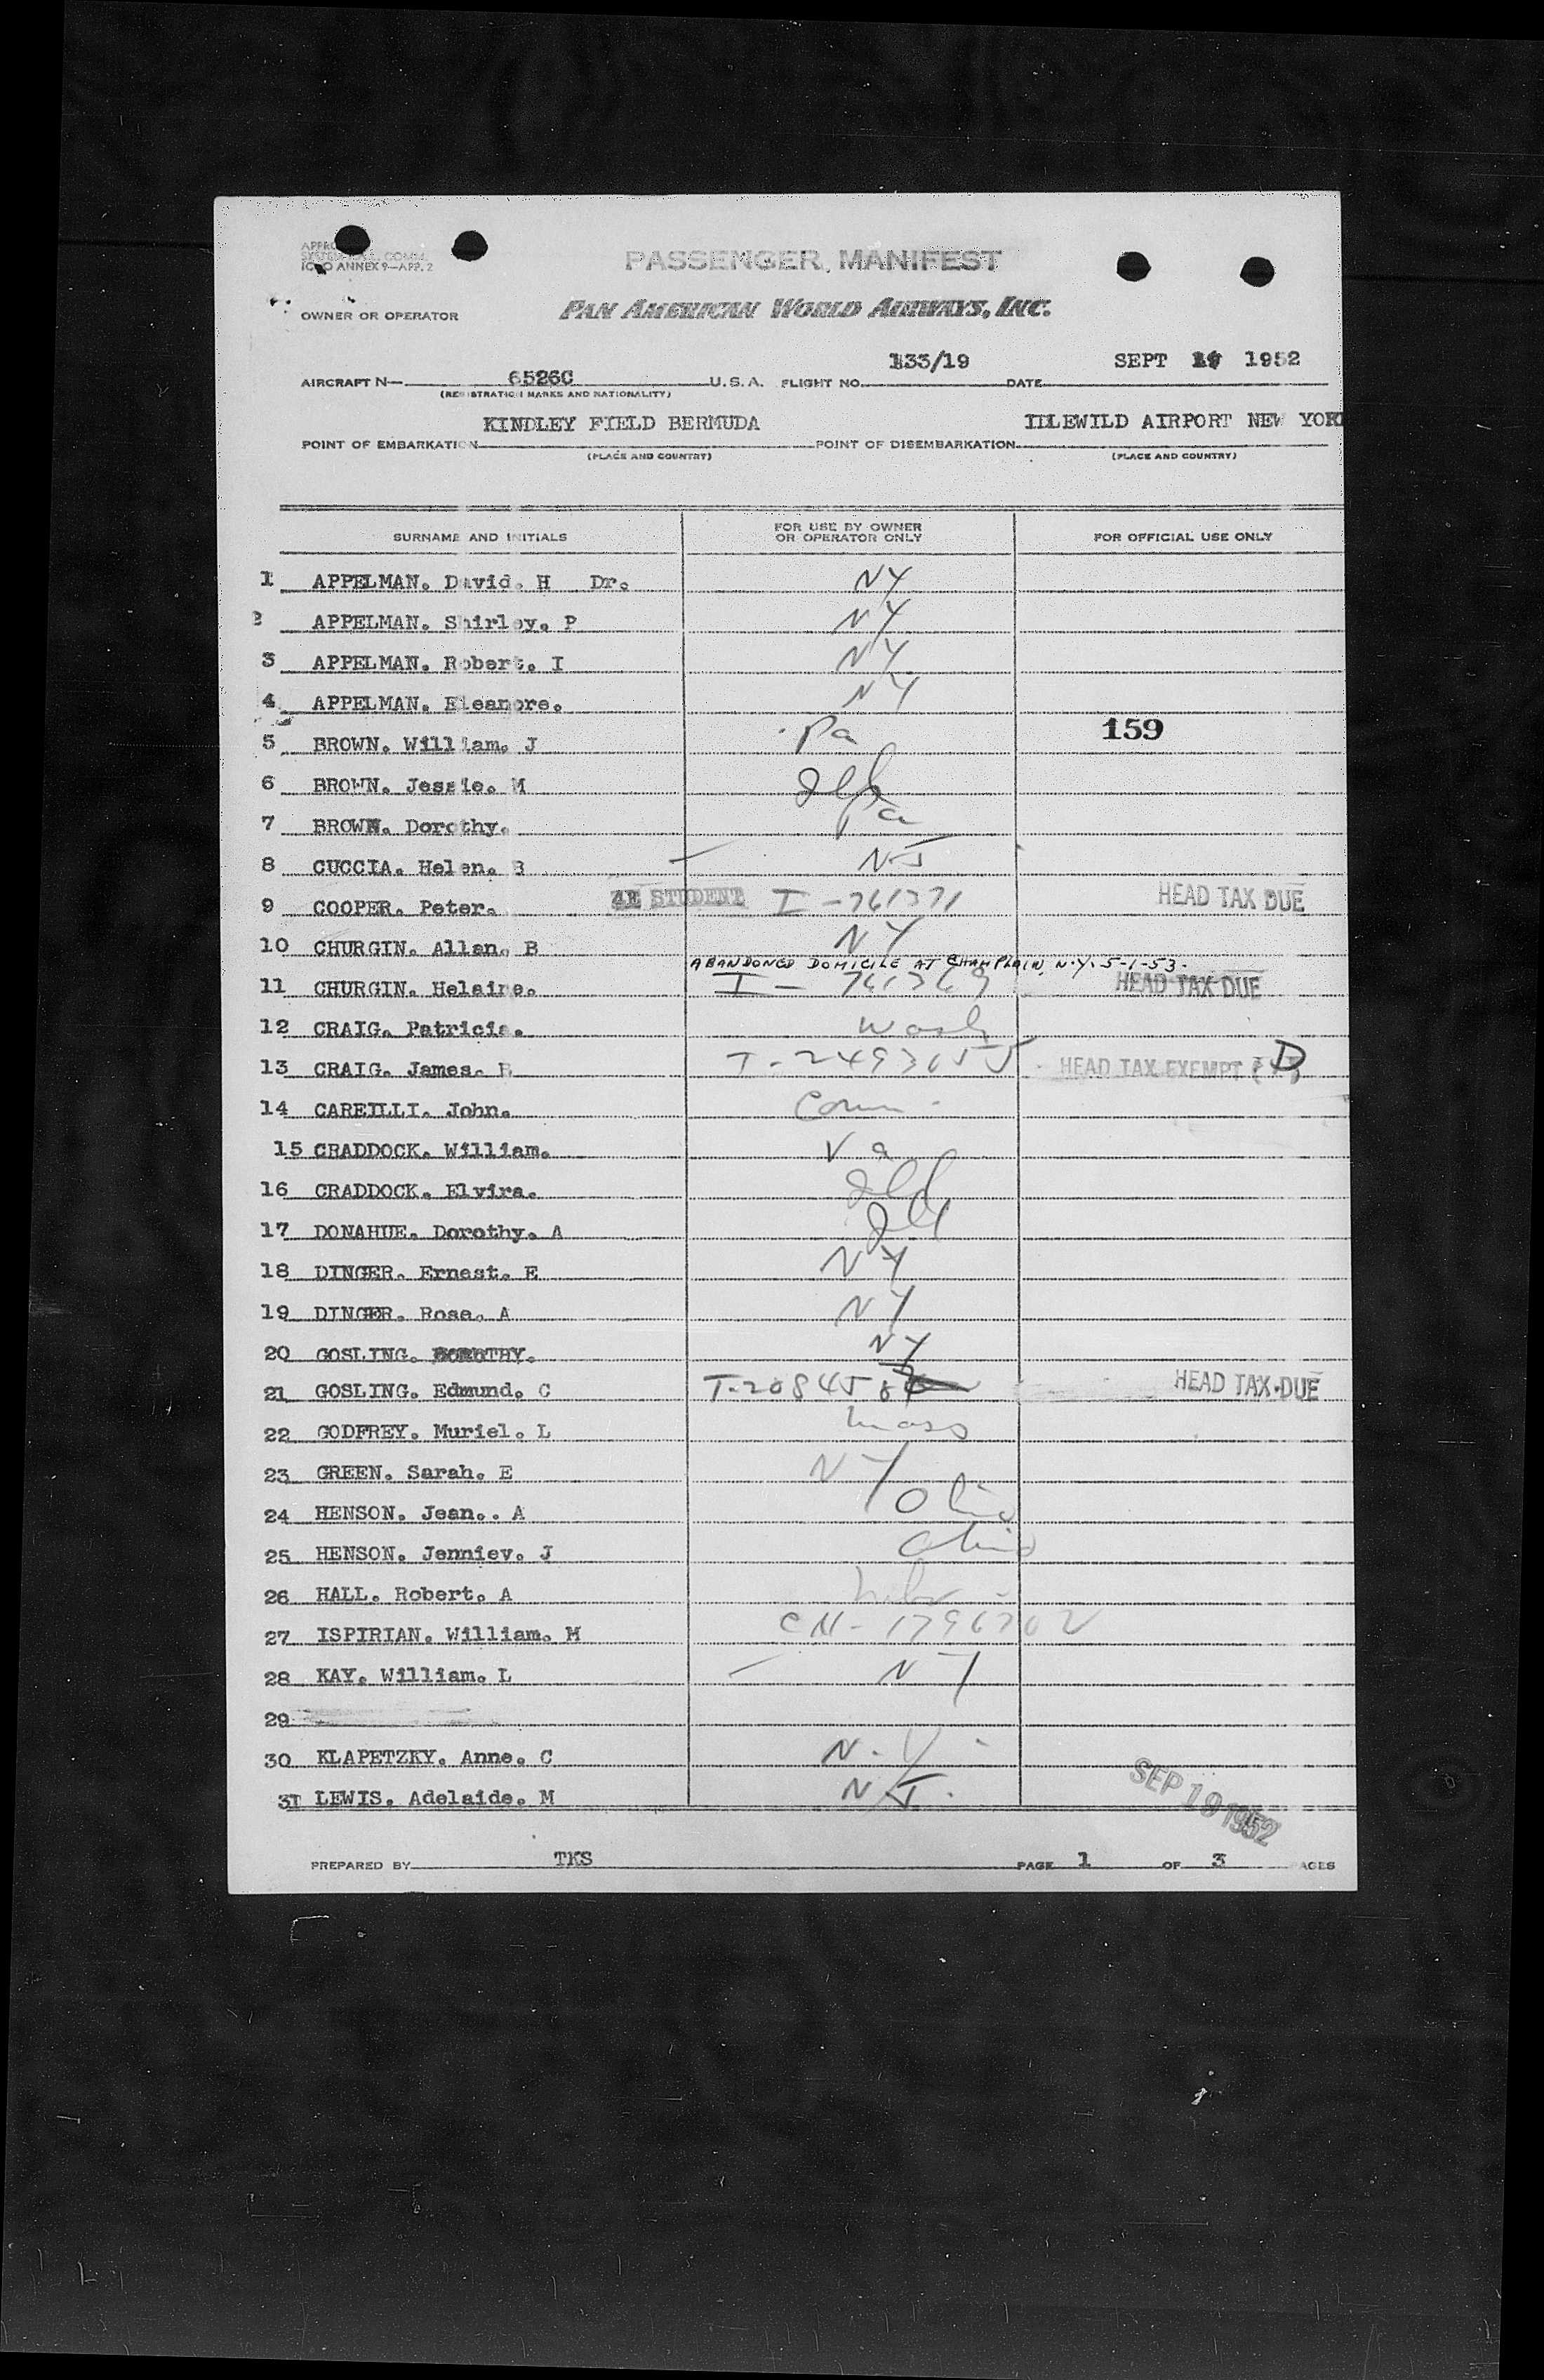 PASSENGER MANIFEST
ICAO ANNEX 9—APP. 2
OWNER OR OPERATOR PAN AMERICAN WORLD AIRWAYS, INC.
AIRCRAFT N— 6526C U.S.A. FLIGHT NO. 133/19 DATE SEPT 19 1952
(REGISTRATION MARKS AND NATIONALITY)
POINT OF EMBARKATION KINDLEY FIELD BERMUDA POINT OF DISEMBARKATION IDLEWILD AIRPORT NEW YORK
(PLACE AND COUNTRY) (PLACE AND COUNTRY)
SURNAME AND INITIALS FOR USE BY OWNER OR OPERATOR ONLY FOR OFFICIAL USE ONLY
1 APPELMAN. David. H Dr. NY
2 APPELMAN. Shirley. P NY
3 APPELMAN. Robert. I NY
4 APPELMAN. Eleanore. NY
5 BROWN. William. J Pa 159
6 BROWN. Jessie. M
7 BROWN. Dorothy. Pa
8 CUCCIA. Helen. B NJ
9 COOPER. Peter. 4E STUDENT I-761371 HEAD TAX DUE
10 CHURGIN. Allan. B NY
ABANDONED DOMICILE AT CHAMPLAIN, N.Y. 5-1-53.
11 CHURGIN. Helaine. I-761369 HEAD TAX DUE
12 CRAIG. Patricia. Wash
13 CRAIG. James. B HEAD TAX EXEMPT
14 CAREILLI. John. Conn.
15 CRADDOCK. William. Va
16 CRADDOCK. Elvira.
17 DONAHUE. Dorothy. A
18 DINGER. Ernest. E NY
19 DINGER. Rose. A NY
20 GOSLING. DOROTHY. NY
21 GOSLING. Edmund. C HEAD TAX DUE
22 GODFREY. Muriel. L Mass
23 GREEN. Sarah. E NY
24 HENSON. Jean.. A Ohio
25 HENSON. Jenniev. J Ohio
26 HALL. Robert. A
27 ISPIRIAN. William. M
28 KAY. William. L NY
29
30 KLAPETZKY. Anne. C N.Y.
31 LEWIS. Adelaide. M NJ.
SEP 19 1952
PREPARED BY TKS PAGE 1 OF 3 PAGES